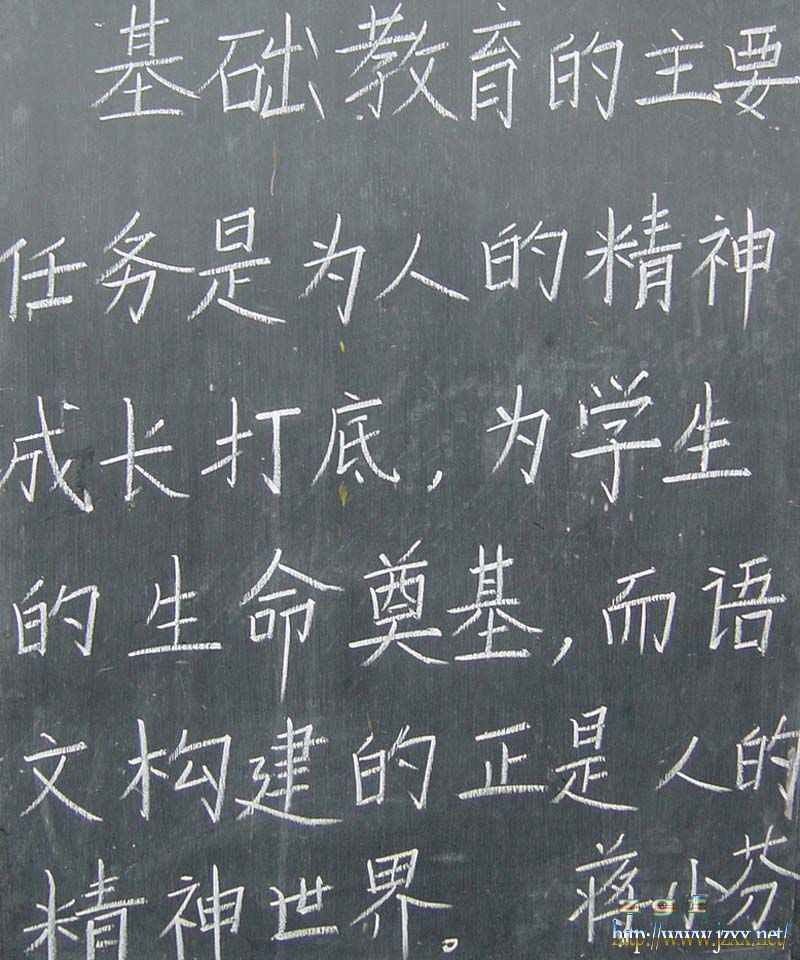 基础教育的主要
任务是为人的精神
成长打底，为学生
的生命奠基，而语
文构建的正是人的
精神世界。 蒋小芬
http://www.jzxx.net/